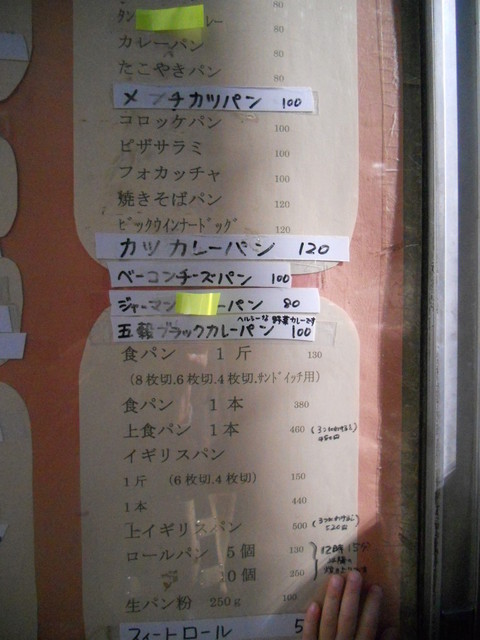 80
レー
カレーパン 80
たこやきパン 80
メンチカツパン 100
コロッケパン 100
ピザサラミ 100
フォカッチャ 100
焼きそばパン 120
ビックウインナードッグ 120
カツカレーパン 120
ベーコンチーズパン 100
ジャーマン ーパン 80
ヘルシーな 野菜カレーです
五穀ブラックカレーパン 100
食パン 1斤 130
(8枚切.6枚切.4枚切.サンドイッチ用)
食パン 1本 380
上食パン 1本 460
イギリスパン
1斤 (6枚切.4枚切) 150
1本 440
上イギリスパン 500
ロールパン 5個 130
12時15分
0個 250
生パン粉 250g 100
フィートロール 5